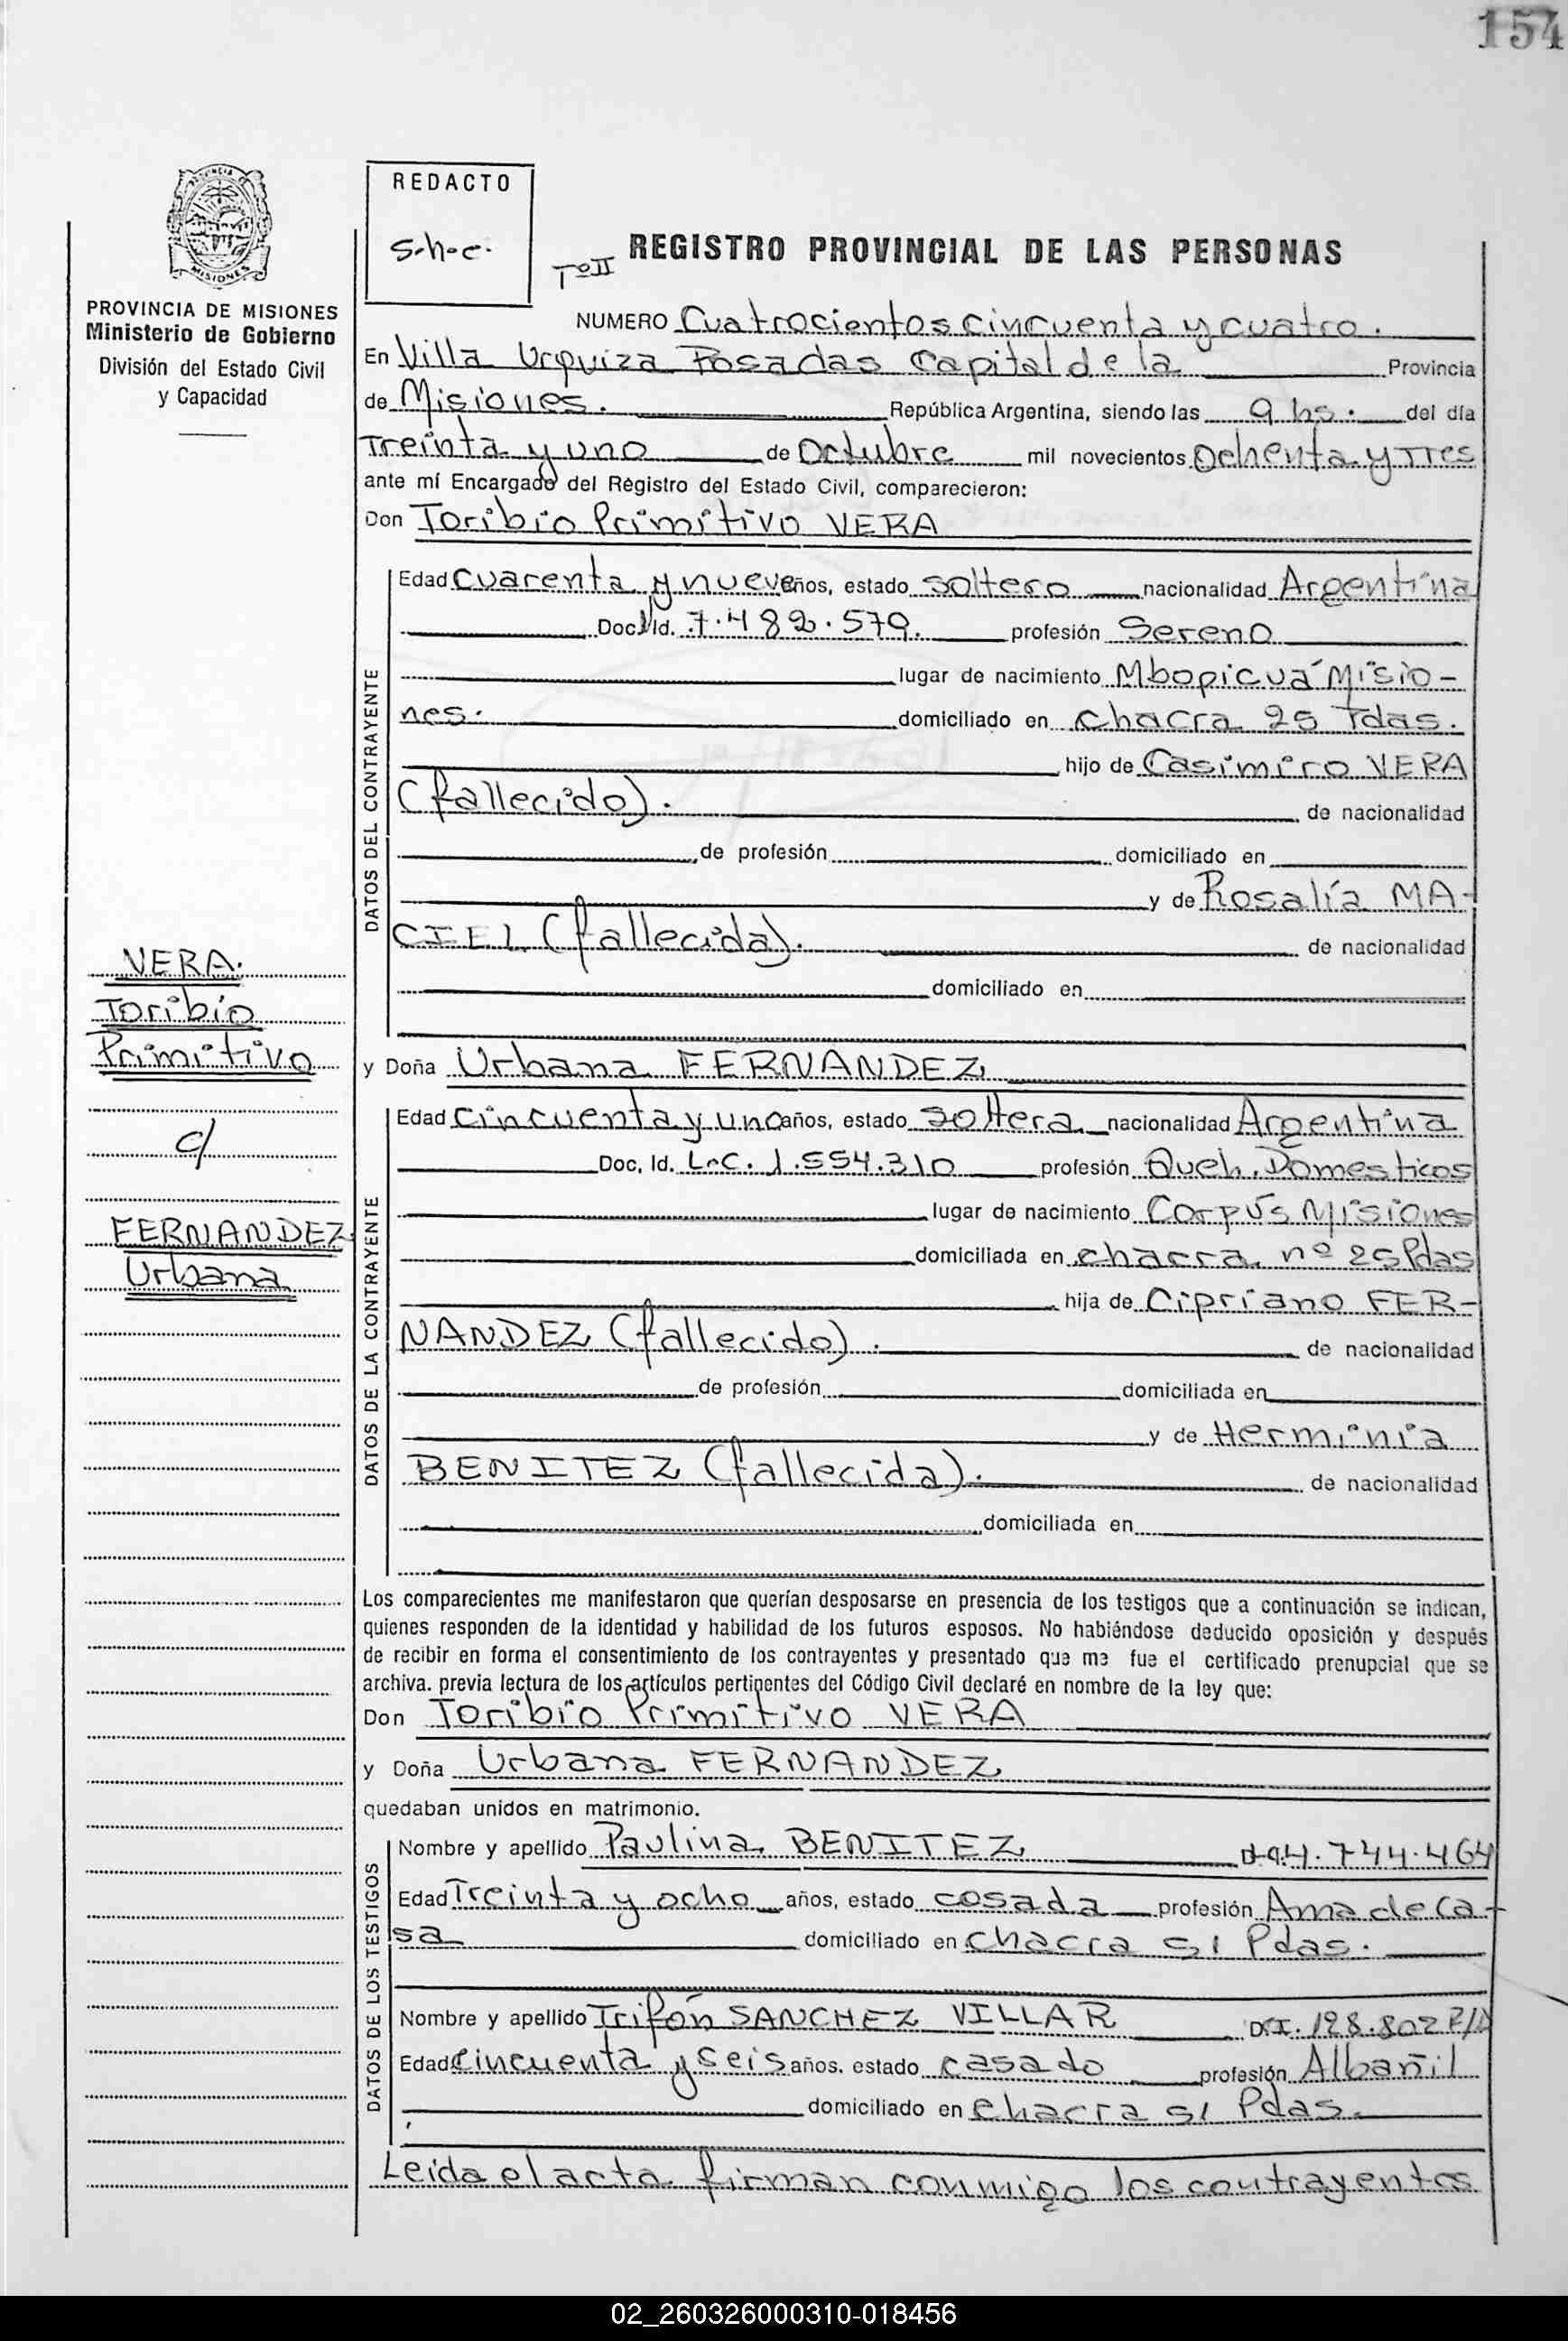 154
REDACTO
S-h-c-
PROVINCIA DE MISIONES
Ministerio de Gobierno
División del Estado Civil
y Capacidad
Tº II REGISTRO PROVINCIAL DE LAS PERSONAS
NUMERO Cuatrocientos cincuenta y cuatro.
En Villa Urquiza Posadas Capital de la Provincia
de Misiones. República Argentina, siendo las 9 hs. del día
Treinta y uno de Octubre mil novecientos Ochenta y Tres
ante mí Encargado del Registro del Estado Civil, comparecieron:
Don Toribio Primitivo VERA
DATOS DEL CONTRAYENTE
Edad cuarenta y nueve años, estado soltero nacionalidad Argentina
Doc. Id. 7.482.579. profesión Sereno
lugar de nacimiento Mbopicuá Misio-
nes. domiciliado en chacra 25 Pdas.
hijo de Casimiro VERA
(fallecido). de nacionalidad
de profesión domiciliado en
y de Rosalía MA-
CIEL (fallecida). de nacionalidad
domiciliado en
VERA.
Toribio
Primitivo
c/
FERNANDEZ
Urbana
y Doña Urbana FERNANDEZ
DATOS DE LA CONTRAYENTE
Edad cincuenta y uno años, estado soltera nacionalidad Argentina
Doc, Id. L.C. 1.554.310 profesión Queh. Domesticos
lugar de nacimiento Corpus Misiones
domiciliada en chacra nº 25 Pdas
hija de Cipriano FER-
NANDEZ (fallecido). de nacionalidad
de profesión domiciliada en
y de Herminia
BENITEZ (fallecida). de nacionalidad
domiciliada en
Los comparecientes me manifestaron que querían desposarse en presencia de los testigos que a continuación se indican,
quienes responden de la identidad y habilidad de los futuros esposos. No habiéndose deducido oposición y después
de recibir en forma el consentimiento de los contrayentes y presentado que me fue el certificado prenupcial que se
archiva. previa lectura de los artículos pertinentes del Código Civil declaré en nombre de la ley que:
Don Toribio Primitivo VERA
y Doña Urbana FERNANDEZ
quedaban unidos en matrimonio.
DATOS DE LOS TESTIGOS
Nombre y apellido Paulina BENITEZ 4.744.464
Edad Treinta y ocho años, estado casada profesión Ama de ca-
sa domiciliado en chacra 51 Pdas.
Nombre y apellido Trifón SANCHEZ VILLAR 198.802
Edad cincuenta y seis años. estado casado profesión Albañil
domiciliado en chacra 51 Pdas.
Leida el acta firman conmigo los contrayentes
02_260326000310-018456